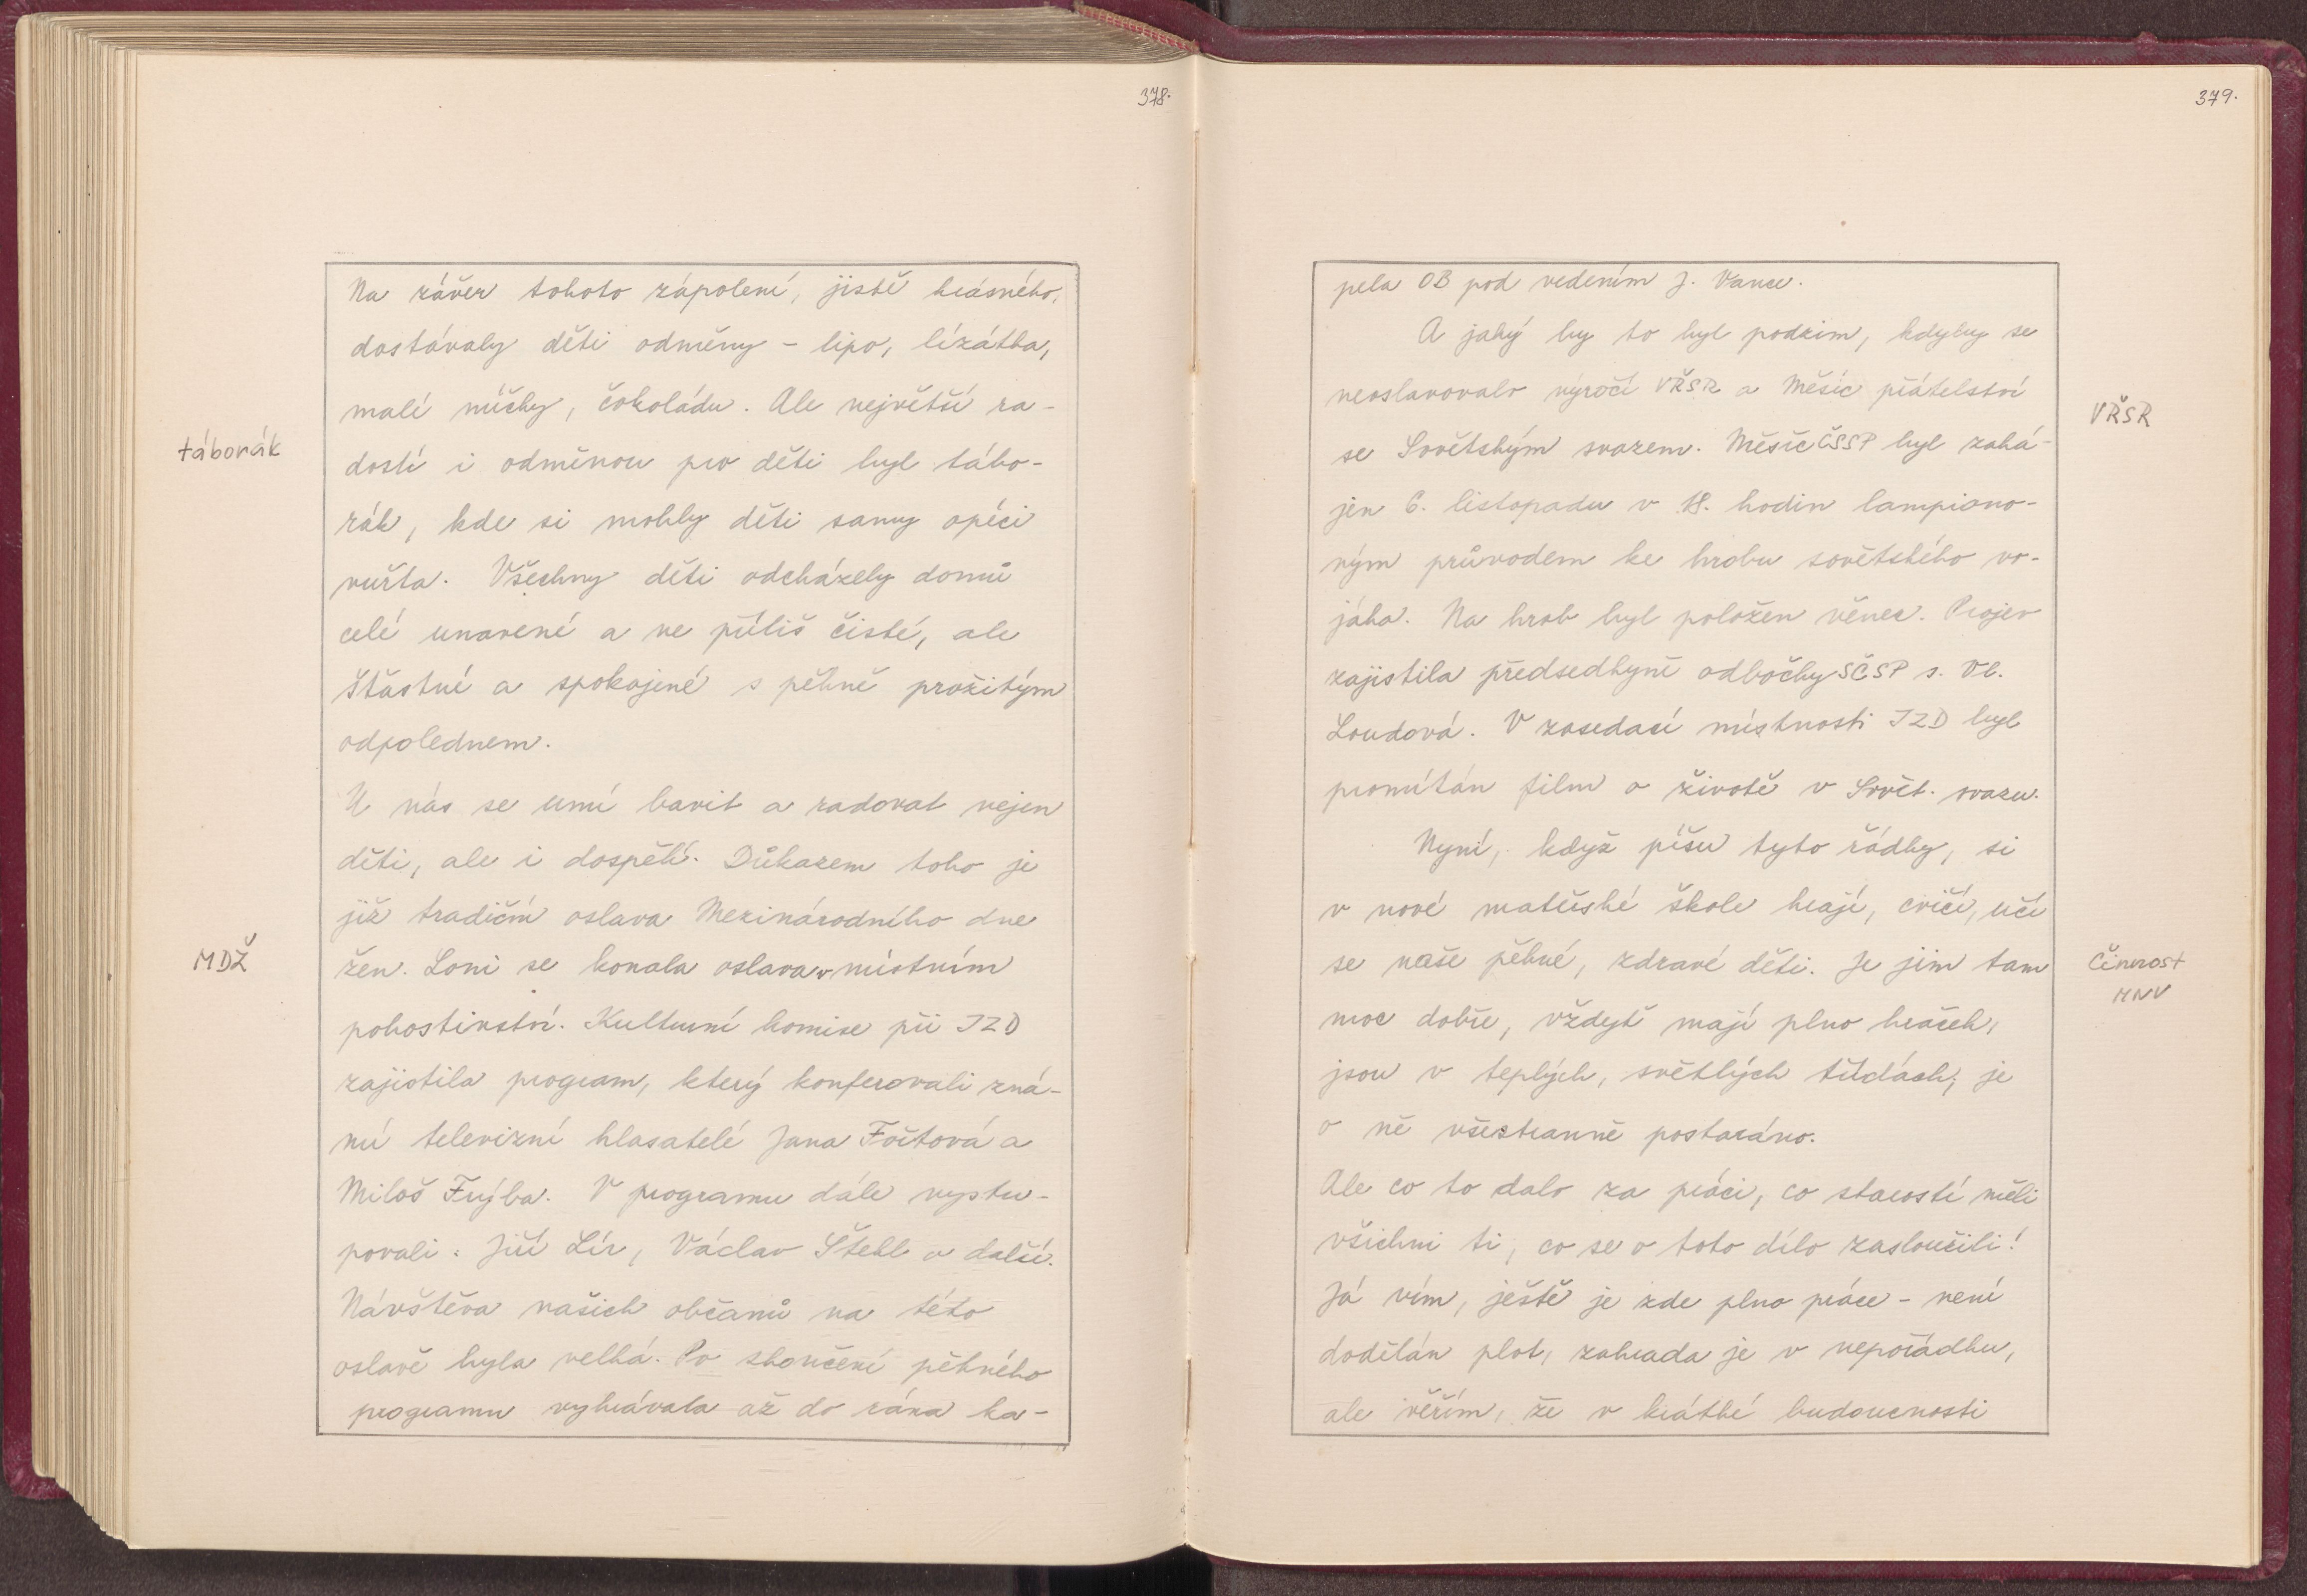 378.
Na závěr tohoto zápolení, jistě krásného,
dostávaly děti odměny - lipo, lízátka,
malé míčky, čokoládu. Ale největší ra-
táborák
dostí i odměnou pro děti byl tábo-
rák, kde si mohly děti samy opéci
vuřta. Všechny děti odcházely domů
celé unavené a ne příliš čisté, ale
šťastné a spokojené s pěkně prožitým
odpolednem.
U nás se umí bavit a radovat nejen
děti, ale i dospělí. Důkazem toho je
již tradiční oslava Mezinárodního dne
MDŽ
žen. Loni se konala oslava v místním
pohostinství. Kulturní komise při JZD
zajistila program, který konferovali zná-
mí televizní hlasatelé Jana Fořtová a
Miloš Frýba. V programu dále vystu-
povali: Jiří Lír, Václav Štekl a další.
Návštěva našich občanů na této
oslavě byla velká. Po skončení pěkného
programu vyhrávala až do rána ka-
379.
pela OB pod vedením J. Vance.
A jaký by to byl podzim, kdyby se
neoslavovalo výročí VŘSR a Měsíc přátelství
VŘSR
se Sovětským svazem. Měsíc ČSSP byl zahá-
jen 6. listopadu v 18. hodin lampiono-
vým průvodem ke hrobu sovětského vo-
jáka. Na hrob byl položen věnec. Projev
zajistila předsedkyně odbočky SČSP s. Vl.
Loudová. V zasedací místnosti JZD byl
promítán film o životě v Sovět. svazu.
Nyní, když píšu tyto řádky, si
v nové mateřské škole hrají, cvičí, učí
se naše pěkné, zdravé děti. Je jim tam
Činnost
MNV
moc dobře, vždyť mají plno hraček,
jsou v teplých, světlých třídách, je
o ně všestranně postaráno.
Ale co to dalo za práci, co starostí měli
všichni ti, co se o toto dílo zasloužili!
Já vím, ještě je zde plno práce - není
dodělán plot, zahrada je v nepořádku,
ale věřím, že v krátké budoucnosti